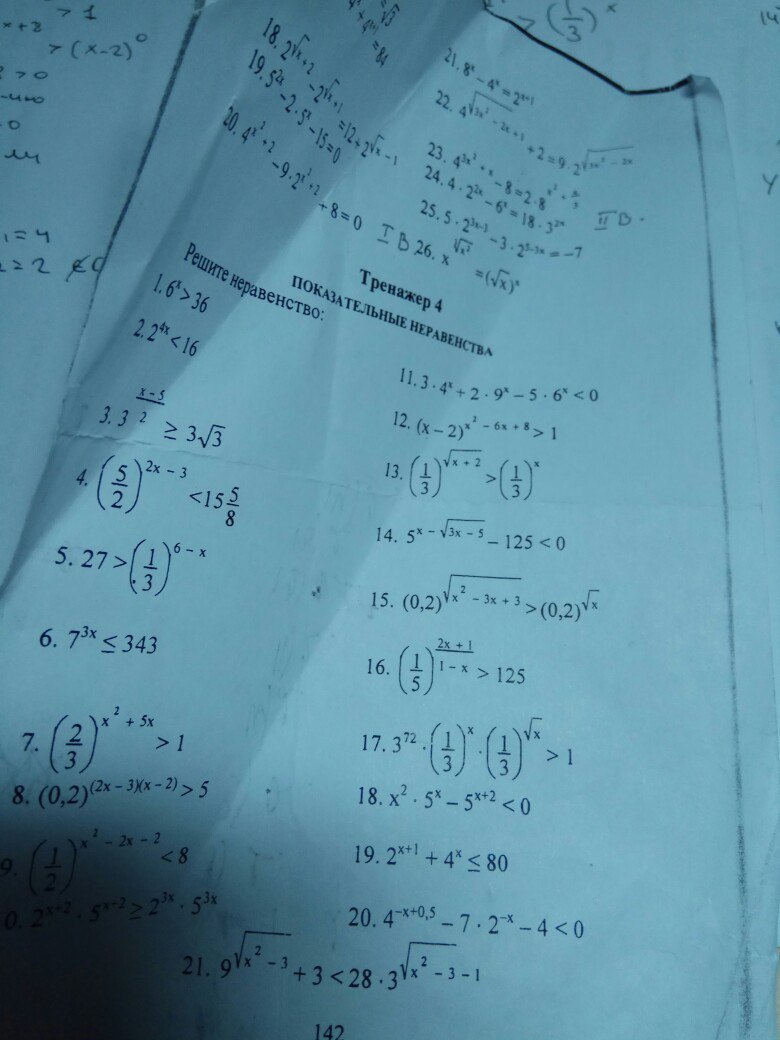 > 1
> (x-2)⁰
> (1/3)^x
= 84
18. 2^(√x+2) - 2^(√x+1) = 12 + 2^(√x-1)
19. 5^(2x) - 2 · 5^x - 15 = 0
20. 4^(x²+2) - 9 · 2^(x²+2) + 8 = 0
I В.
21. 8^x - 4^x = 2^(x+1)
23. 4^(3x²+x) - 8 = 2 · 8^(x²+x/3)
24. 4 · 2^(2x) - 6^x = 18 · 3^(2x)
II В.
25. 5 · 2^(3x-3) - 3 · 2^(5-3x) = -7
= (√x)^x
Тренажер 4
ПОКАЗАТЕЛЬНЫЕ НЕРАВЕНСТВА
Решите неравенство:
1. 6^x > 36
2. 2^(4x) < 16
3. 3^((x-5)/2) ≥ 3√3
4. (5/2)^(2x-3) < 15 5/8
5. 27 > (1/3)^(6-x)
6. 7^(3x) ≤ 343
7. (2/3)^(x²+5x) > 1
8. (0,2)^((2x-3)(x-2)) > 5
9. (1/2)^(x²-2x-2) < 8
0. 2^(x+2) · 5^(x+2) ≥ 2^(3x) · 5^(3x)
11. 3 · 4^x + 2 · 9^x - 5 · 6^x < 0
12. (x-2)^(x²-6x+8) > 1
13. (1/3)^(√(x+2)) > (1/3)^x
14. 5^(x-√(3x-5)) - 125 < 0
15. (0,2)^(√(x²-3x+3)) > (0,2)^(√x)
16. (1/5)^((2x+1)/(1-x)) > 125
17. 3^72 · (1/3)^x · (1/3)^(√x) > 1
18. x² · 5^x - 5^(x+2) < 0
19. 2^(x+1) + 4^x ≤ 80
20. 4^(-x+0,5) - 7 · 2^(-x) - 4 < 0
21. 9^(√(x²-3)) + 3 < 28 · 3^(√(x²-3)-1)
142